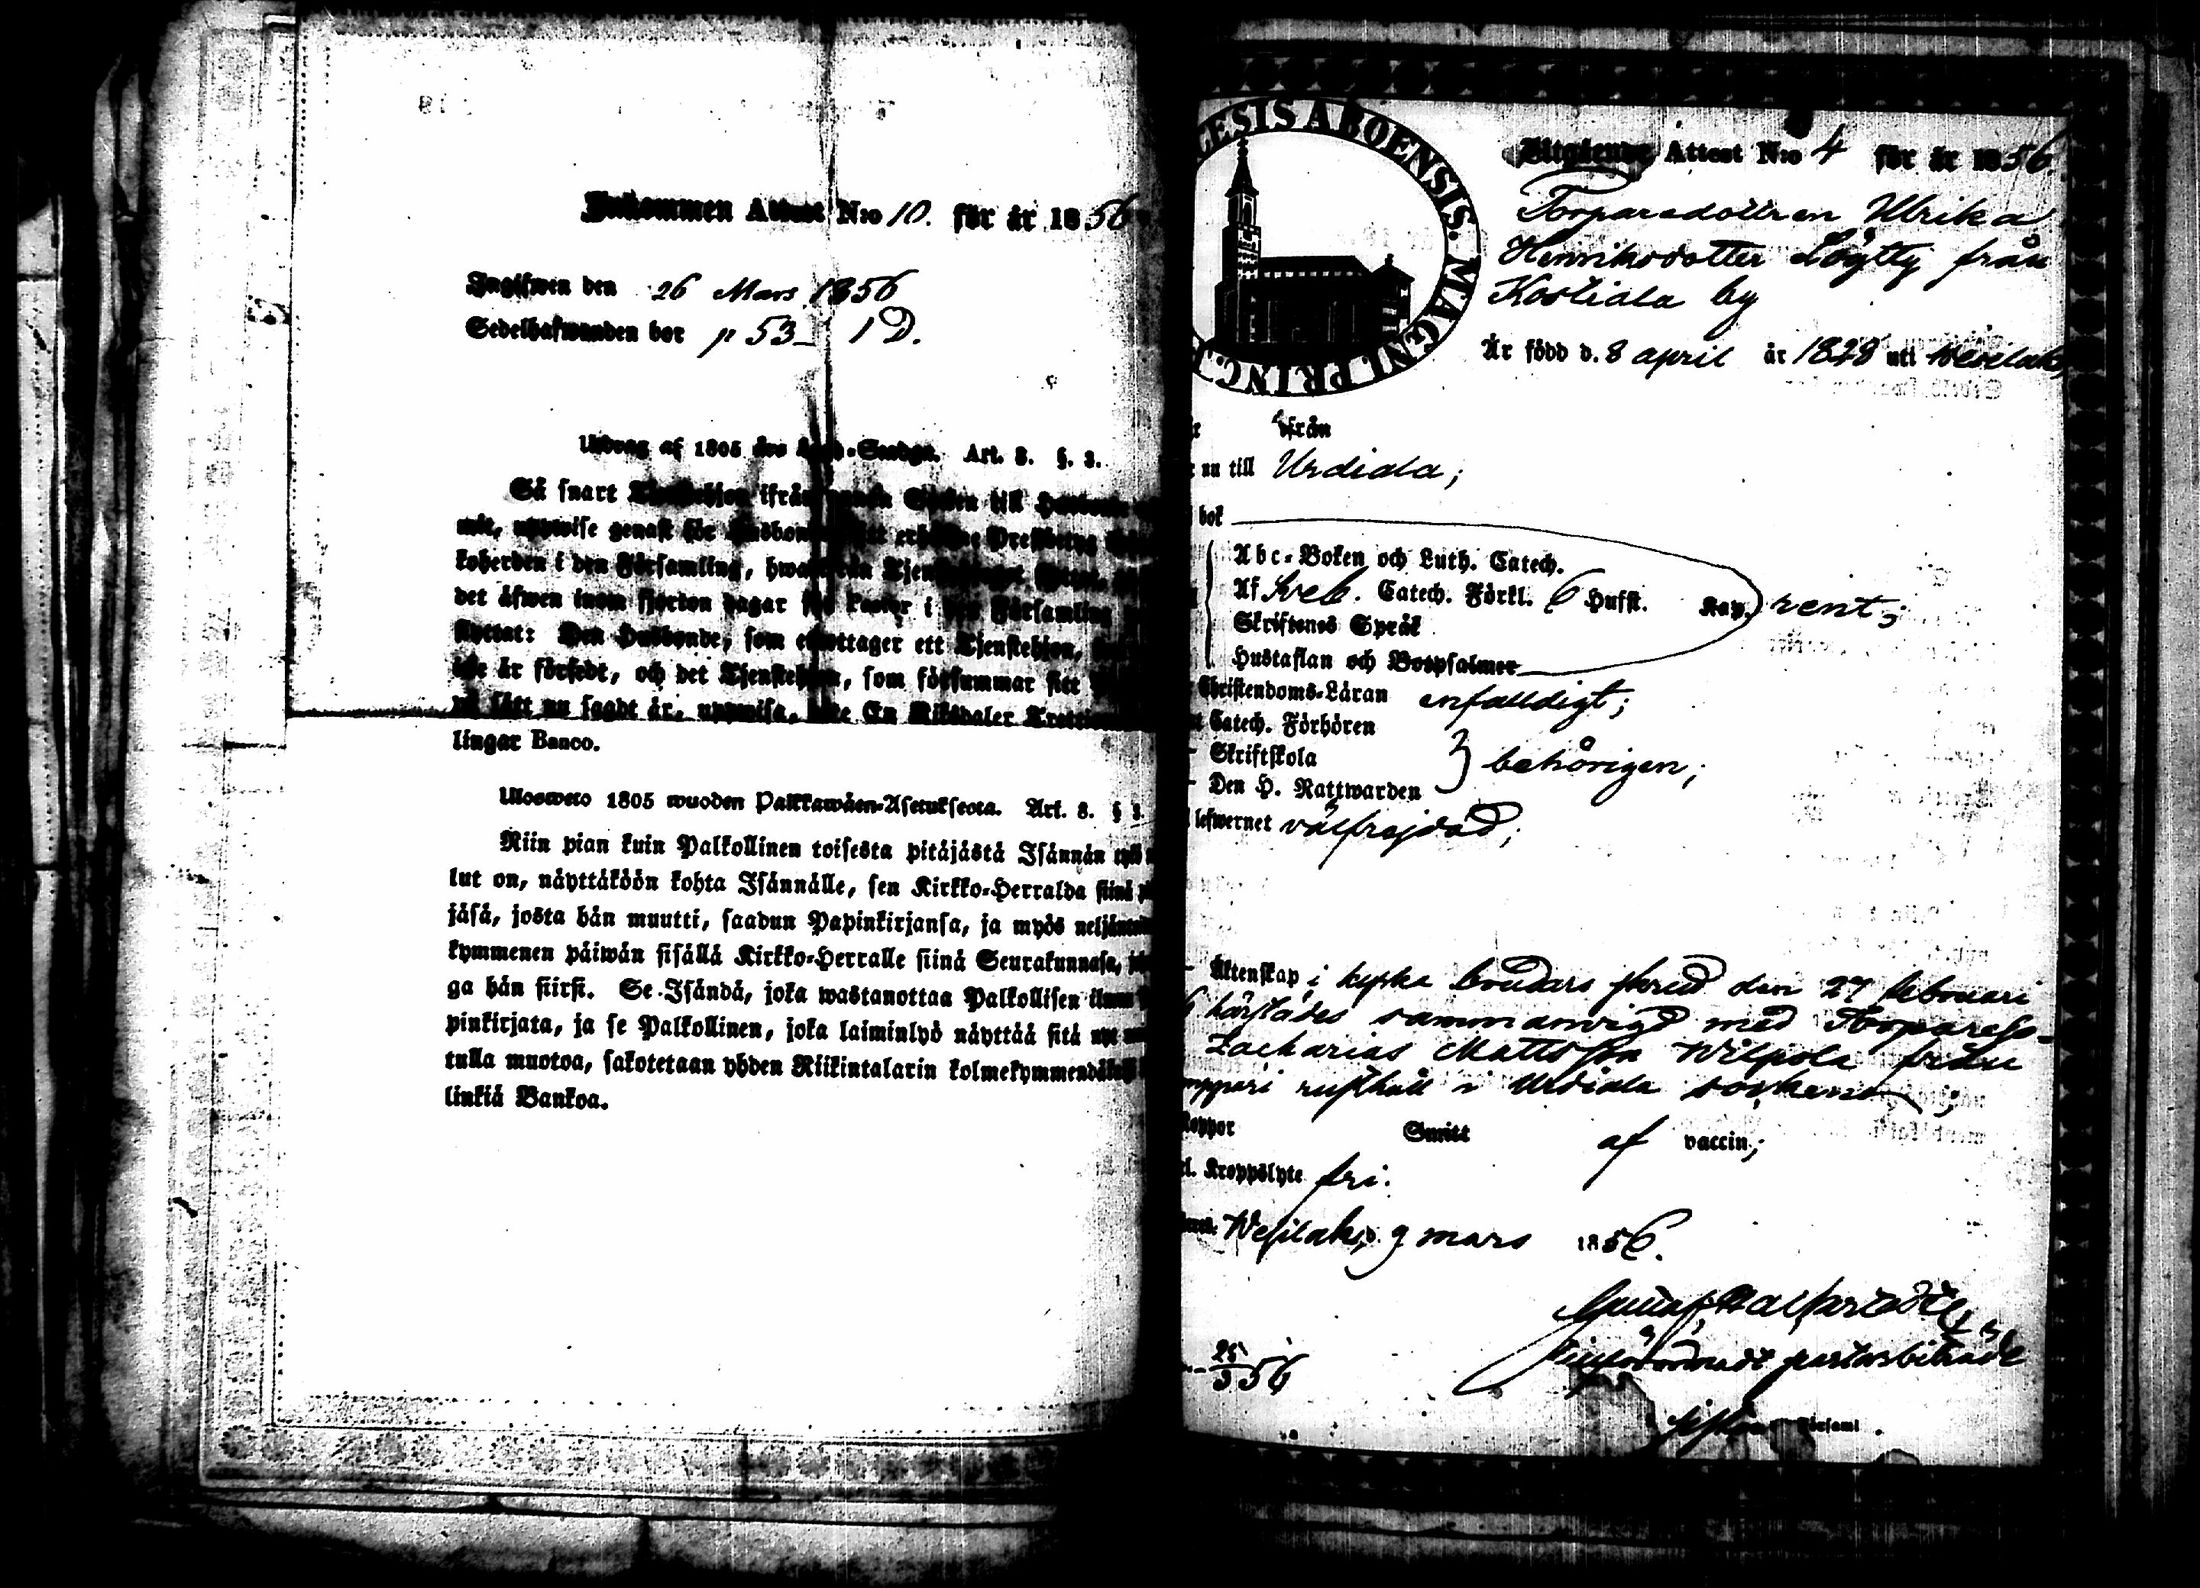 Inkommen Attest N:o 10. för år 1856
Ingifwen den 26 Mars 1856
Sedelhafwanden bor p 53 1 D.
Utdrag af 1805 års Lego-Stadga. Art. 8. §. 3.
Så snart Tjenstehjon ifrån annan Socken till Husbonde
mit, uppwise genast för Husbonden sitt erhållne Prestbetyg
koherden i den Församling, hwarifrån Tjenstehjonet
det äfwen inom fjorton dagar för Pastor i den Församling
flyttat: Den Husbonde, som emottager ett Tjenstehjon,
icke är försedt, och det Tjenstehjon, som försummar sitt
på sätt nu sagdt är, uppwisa, böte En Riksdaler Trettio
lingar Banco.
Ulosweto 1805 wuoden Palkkawäen-Asetuksesta. Art. 8. § 3.
Niin pian kuin Palkollinen toisesta pitäjästä Isännän työ
lut on, näyttäköön kohta Isännälle, sen Kirkko-Herralda siinä
jäsä, josta hän muutti, saadun Papinkirjansa, ja myös neljän
kymmenen päiwän sisällä Kirkko-Herralle siinä Seurakunnasa,
ga hän siirsi. Se Isändä, joka wastanottaa Palkollisen ilman
pinkirjata, ja se Palkollinen, joka laiminlyö näyttää sitä nyt
tulla muotoa, sakotetaan yhden Riikintalarin kolmekymmendä
linkiä Bankoa.
CESIS ABOENSIS. MAGNI PRINC.
Utgående Attest N:o 4 för år 1856.
Torparedottren Ulrika
Henriksdotter Löytty från
Kostiala by
Är född d. 8 april år 1828 uti Wesilaks,
ifrån
nu till Urdiala;
bok
Abc-Boken och Luth. Catech.
Af Sveb. Catech. Förkl. 6 Hufst. Kap. rent;
Skriftenes Språk
Hustaflan och Botpsalmer
Christendoms-Läran enfalldigt;
Catech. Förhören
Skriftskola } behörigen;
Den H. Nattwarden
lefwernet välfrejdad;
Äktenskap i kyska brudars skrud den 27 februari
härstädes sammanvigd med Torpareso-
Zacharias Mattsson Wilpola från
rusthåll i Urdiala socken;
Koppor Smitt af vaccin;
Kroppslyte fri.
Wesilaks, 9 mars 1856.
Gustaf
pastorsbiträde
25/3 56
Församl.